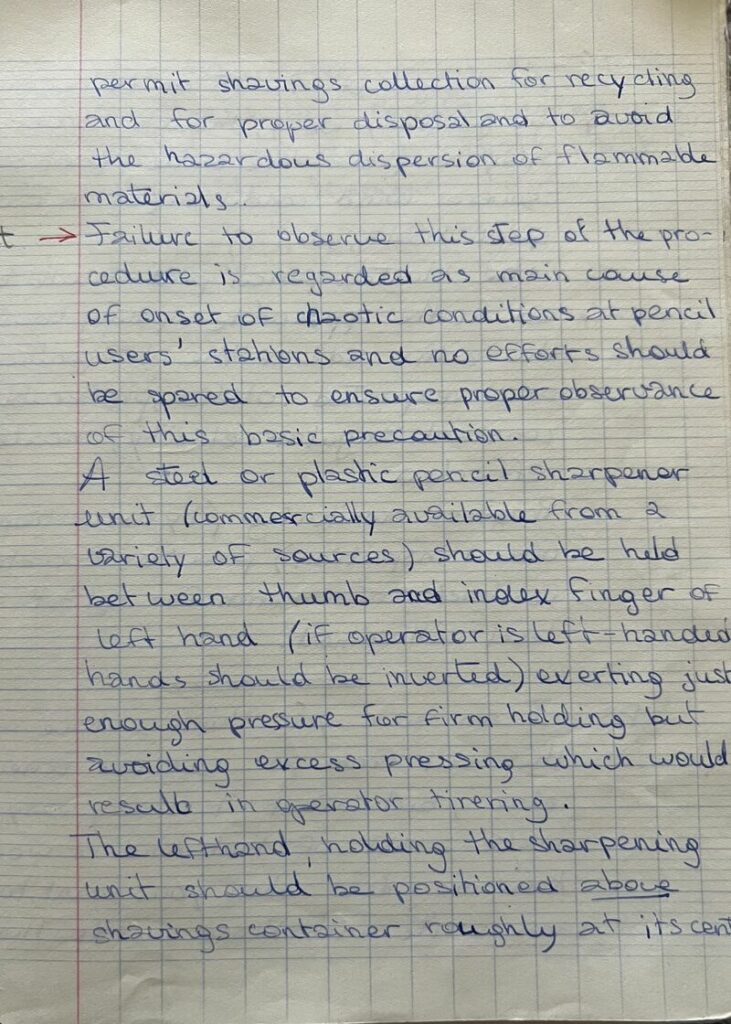 permit shavings collection for recycling
and for proper disposal and to avoid
the hazardous dispersion of flammable
materials.
t → Failure to observe this step of the pro-
cedure is regarded as main cause
of onset of chaotic conditions at pencil
users' stations and no efforts should
be spared to ensure proper observance
of this basic precaution.
A steel or plastic pencil sharpener
unit (commercially available from a
variety of sources) should be held
between thumb and index finger of
left hand (if operator is left-handed
hands should be inverted) exerting just
enough pressure for firm holding but
avoiding excess pressing which would
result in operator tirering.
The lefthand, holding the sharpening
unit should be positioned above
shavings container roughly at its cent